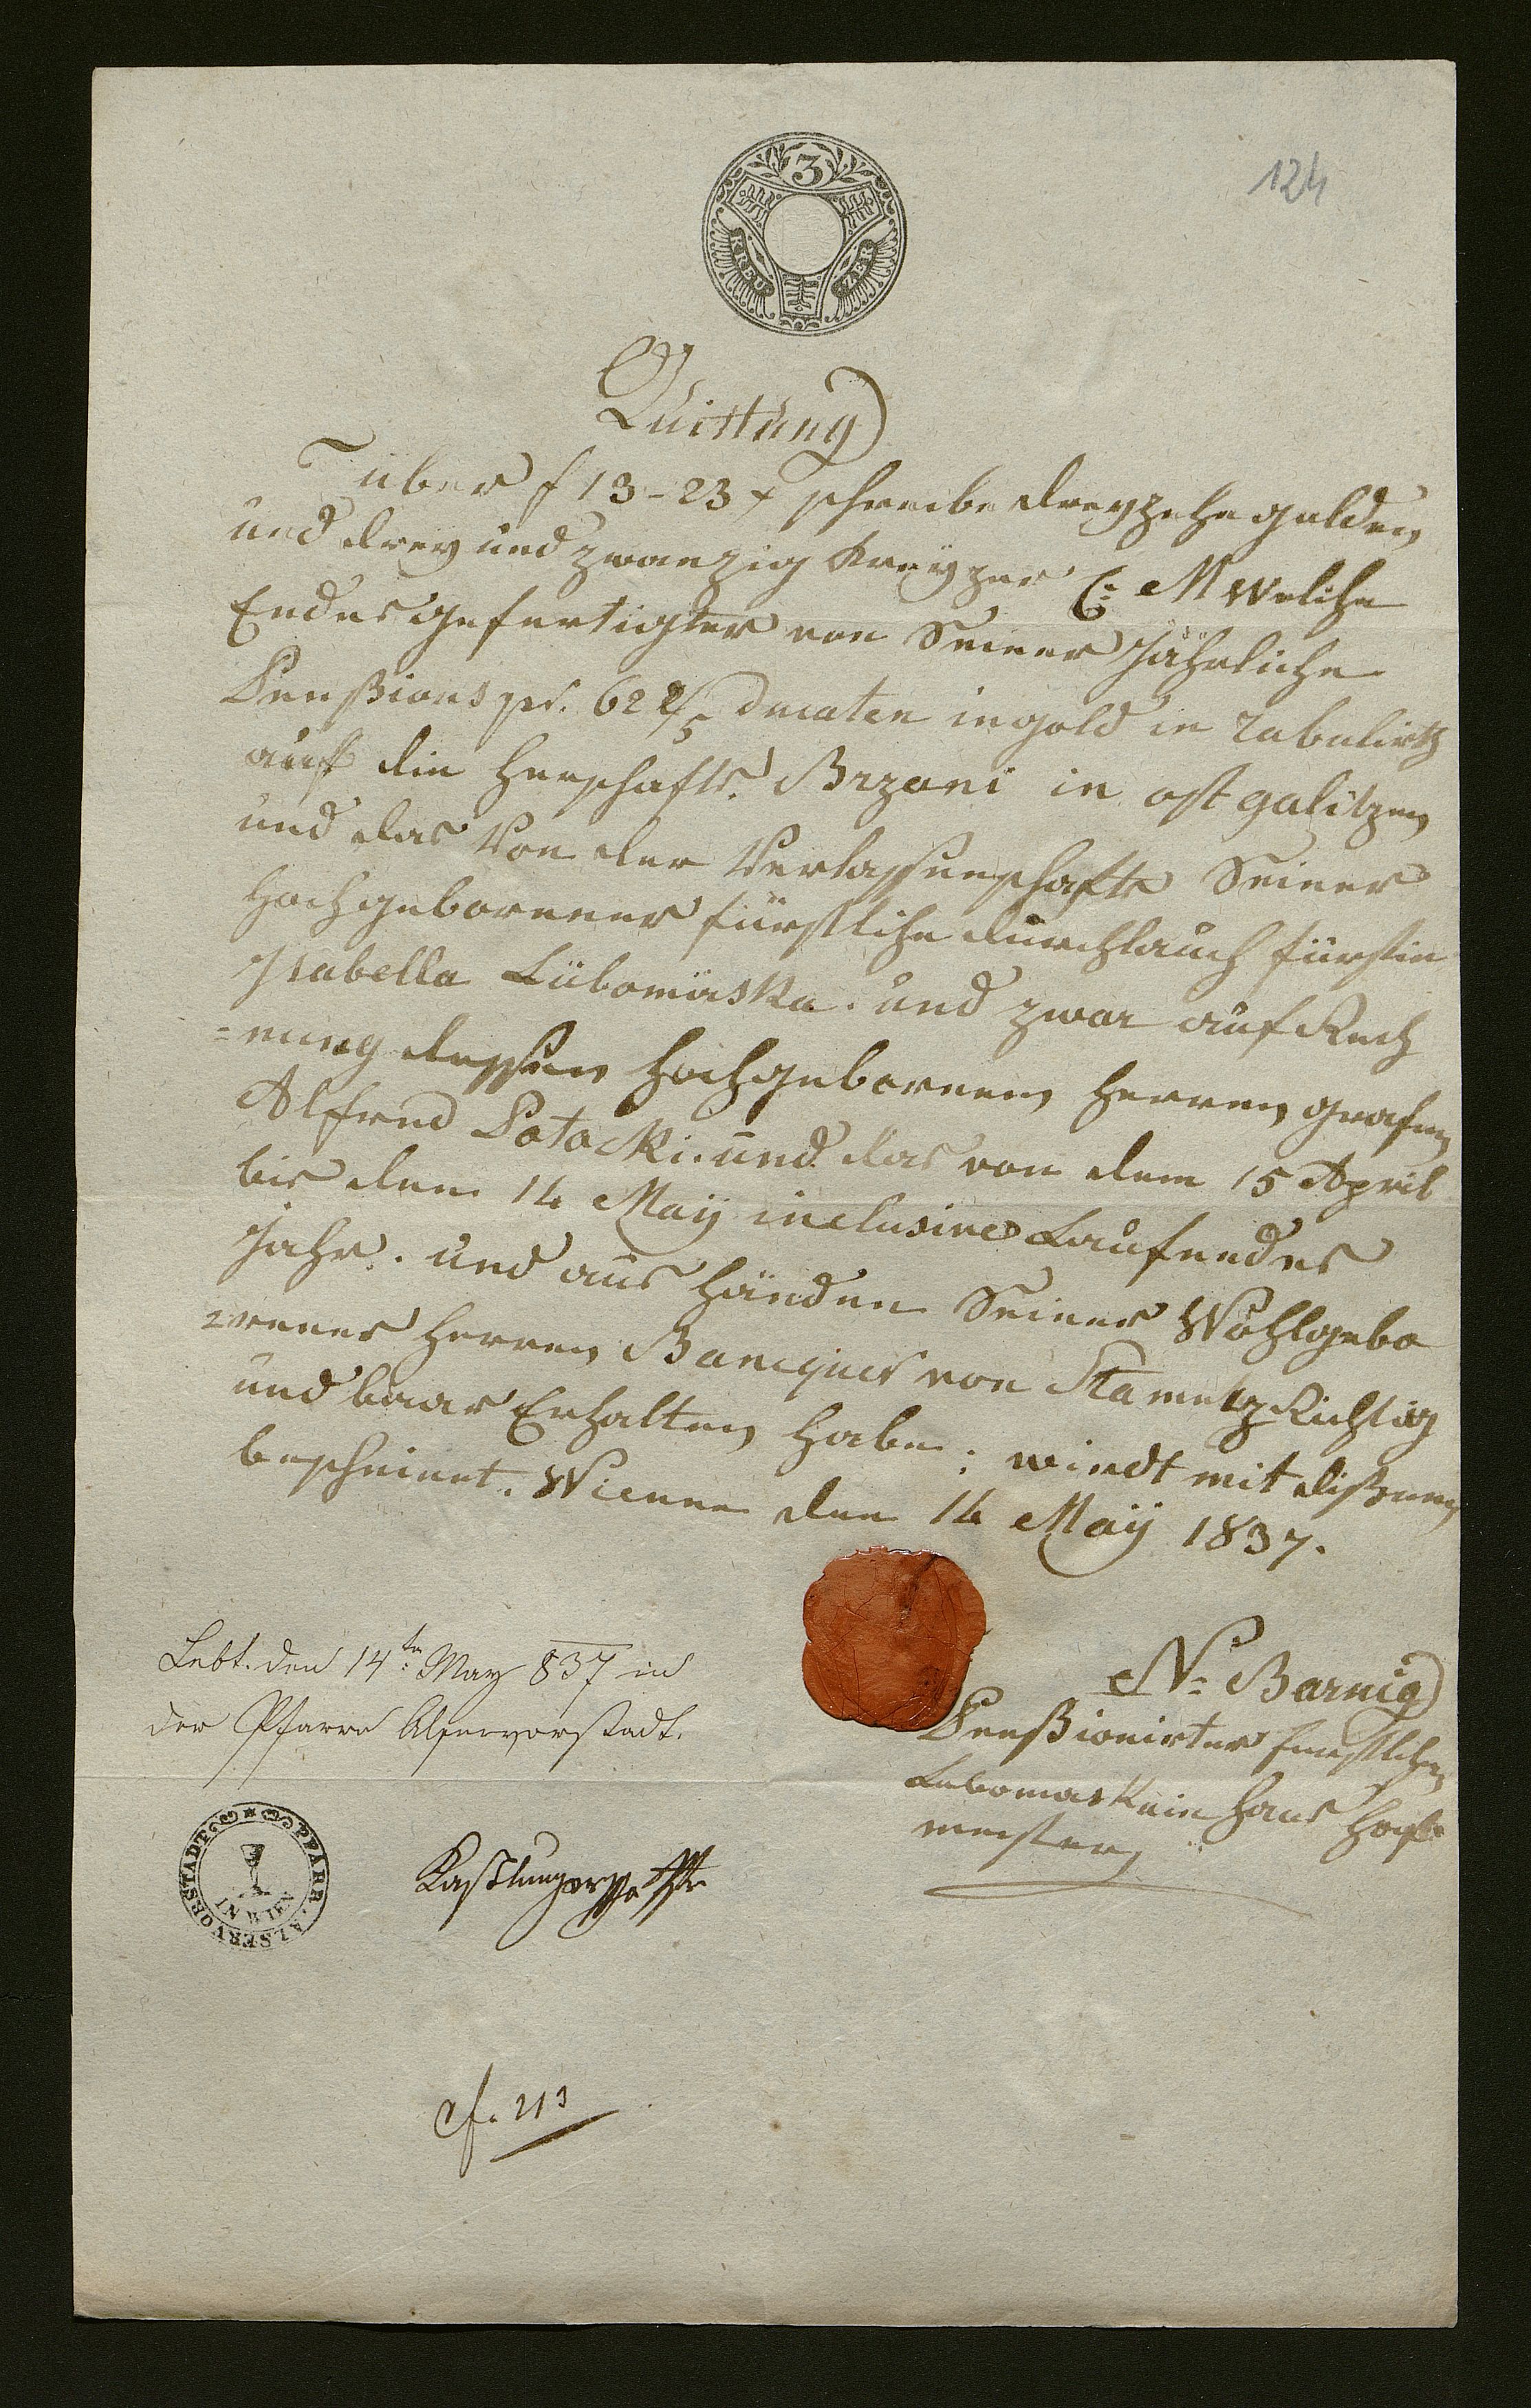 124
3
KREU ZER
Quittung
über f 13-23 x schreibe dreyzehn gulden
und drey und zwanzig Kreyzer C: M welche
Endesgefertigter von Seiner Jährliche
Penßions pr. 62 2/5 ducaten in gold in Tabulirth
auf die Herschafts. Brzani in ost galitzen
und das Von der Verlassenschafte Seiner
Hochgeborener fürstliche durchlauch fürstin
Isabella Lübomirska. und zwar auf Rech
=nung dessen Hochgeborenen Herren grafen
Alfred Potocki. und das von dem 15 April
bis dem 14 Maÿ inclusive Laufendes
Jahr. und aus Händen Seiner Wohlgebo
=rener Herren Banquer von Stametz Richtig
und baar Erhalten habe; wirdt mit dißem
bescheinet. Wienn den 14 Maÿ 1837.
Lebt. den 14ten May 837 in
der Pfarre Alservorstadt.
N: Barnig
Penßionirter fürstlichen
Lubomirskain Haus Hof
meister
PFARR. ALSERVORSTADT
IN WIEN
cf. 213